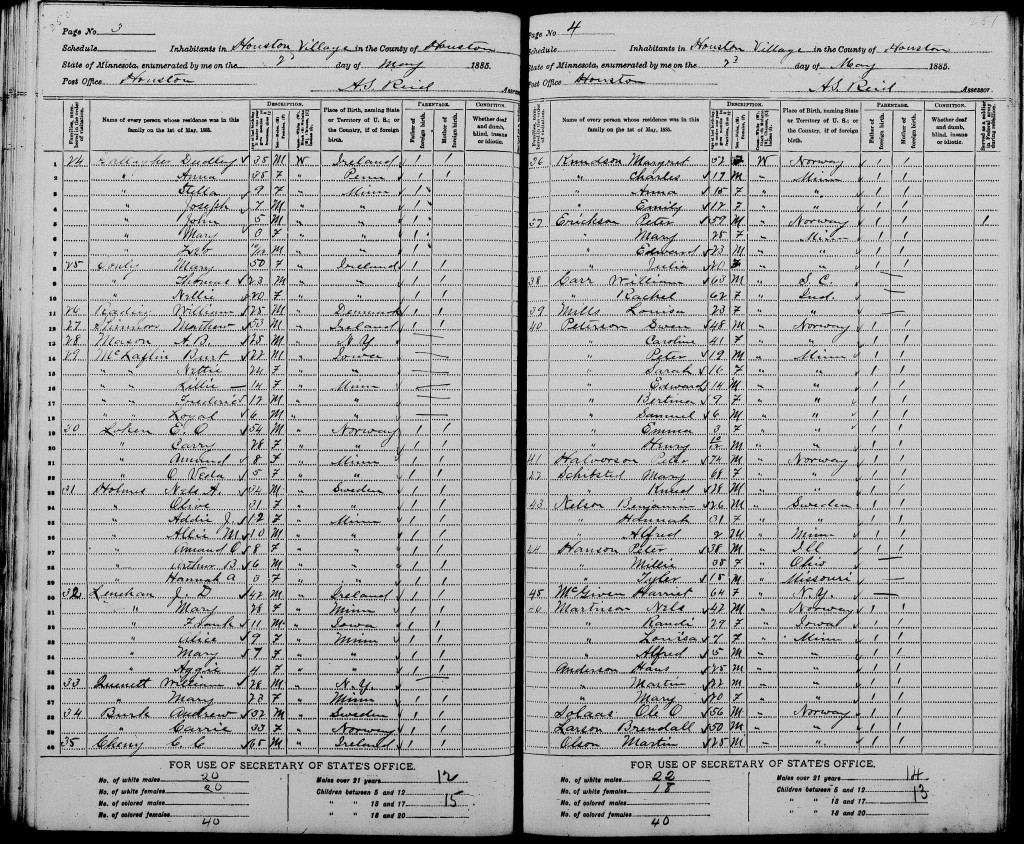 Page No. 3
Schedule Inhabitants in Houston Village in the County of Houston
State of Minnesota, enumerated by me on the 2d day of May 1885.
Post Office Houston
A.S. Reid Assessor
DESCRIPTION. PARENTAGE. CONDITION.
Name of every person whose residence was in this family on the 1st of May, 1885.
Place of Birth, naming State or Territory of U. S.; or the Country, if of foreign birth.
Father of foreign birth. Mother of foreign birth.
Whether deaf and dumb, blind, insane or idiotic.
1 24 Gallagher Dudley 38 M W Ireland 1 1
2 " Anna 38 F " Penn 1 1
3 " Stella 9 F " Minn 1 "
4 " Joseph 7 M " " 1 "
5 " John 5 M " " 1 "
6 " Mary 3 F " " 1 "
7 " M " " 1 "
8 25 Mary 50 F " Ireland 1 1
9 " Thomas 23 M " " 1 1
10 " Nellie 20 F " " 1 1
11 26 William 25 M " Denmark 1 1
12 27 Mathew 53 M " Ireland 1 1
13 28 Mason A.B. 25 M " N.Y.
14 29 McLaflin Burt 22 M " Iowa
15 " " Nettie 24 F " "
16 " " Lillie 14 F " Minn
17 " " Frederic 17 M " "
18 " " Loyal 6 M " "
19 30 Loken E. O 54 M " Norway 1 1
20 " Carry 28 F " " 1 1
21 " Amund 8 F " Minn 1 1
22 " O Veda 5 F " " 1 1
23 31 Holmes Nels H. 34 M " Sweden 1 1
24 " Olive 31 F " " 1 1
25 " Addie J. 12 F " Minn 1 1
26 " Allie M 10 M " " 1 1
27 " Amand O 8 F " " 1 1
28 " Arthur B. 6 M " " 1 1
29 " Hannah A 3 F " " 1 1
30 32 Lenihan J. D 42 M " Ireland 1 1
31 " Mary 28 F " Minn 1 1
32 " Frank 11 M " Iowa 1 1
33 " Alice 9 F " Minn 1 1
34 " Mary 7 F " " 1 1
35 " Aggie 4 F " " 1 1
36 33 William 28 M " N.Y.
37 " Mary 22 F " Minn 1 1
38 34 Burk Andrew 32 M " Sweden 1 1
39 " Carrie 33 F " Norway 1 1
40 35 Cherry C. C 65 M " Ireland 1 1
FOR USE OF SECRETARY OF STATE'S OFFICE.
No. of white males 20
No. of white females 20
No. of colored males
No. of colored females
40
Males over 21 years 12
Children between 5 and 12 15
" " 15 and 17
" " 18 and 20
251
Page No. 4
Schedule Inhabitants in Houston Village in the County of Houston
State of Minnesota, enumerated by me on the 2d day of May 1885.
Post Office Houston
A.S. Reid Assessor.
DESCRIPTION. PARENTAGE. CONDITION.
Name of every person whose residence was in this family on the 1st of May, 1885.
Place of Birth, naming State or Territory of U. S.; or the Country, if of foreign birth.
Father of foreign birth. Mother of foreign birth.
Whether deaf and dumb, blind, insane or idiotic.
36 Knudson Margret 52 F W Norway 1 1
" Charles 17 M " Minn 1 1
" Anna 15 F " " 1 1
" Emily 12 F " " 1 1
37 Erickson Peter 59 M " Norway 1 1 1
" Mary 28 F " Minn 1 1
" Edward 23 M " " 1 1
" Julia 20 F " " 1 1
38 Carr William 63 M " S. C.
" Rachel 62 F " Ind.
39 Mills Louisa 23 F " "
40 Peterson Swen 48 M " Norway 1 1
" Caroline 41 F " " 1 1
" Peter 19 M " Minn 1 1
" Sarah 16 F " " 1 1
" Edward 14 M " " 1 1
" Bertina 9 F " " 1 1
" Samuel 6 M " " 1 1
" Emma 3 F " " 1 1
" Henry 10/12 M " " 1 1
41 Halvorson Peter 74 M " Norway 1 1
42 Schibsted Mary 68 F " " 1 1
" Knud 28 M " " 1 1
43 Nelson Benjamin 26 M " Sweden 1 1
" Hannah 31 F " " 1 1
" Alfred 2 M " Minn 1 1
44 Hanson Peter 38 M " Ill 1 1
" Millie 38 F " Ohio
" Tyler 18 M " Missouri
45 McGiven Harriet 64 F " N.Y.
46 Martinson Nels 42 M " Norway 1 1
" Randi 29 F " Iowa 1 1
" Louisa 7 F " Minn 1 1
" Alfred 5 M " " 1 1
Anderson Hans 25 M " " 1 1
" Martin 22 M " " 1 1
" Mary 20 F " " 1 1
Solaas Ole O 56 M " Norway 1 1
Larson Brendall 50 M " " 1 1
Olson Martin 25 M " " 1 1
FOR USE OF SECRETARY OF STATE'S OFFICE.
No. of white males 22
No. of white females 18
No. of colored males
No. of colored females
40
Males over 21 years 14
Children between 5 and 12 13
" " 15 and 17
" " 18 and 20